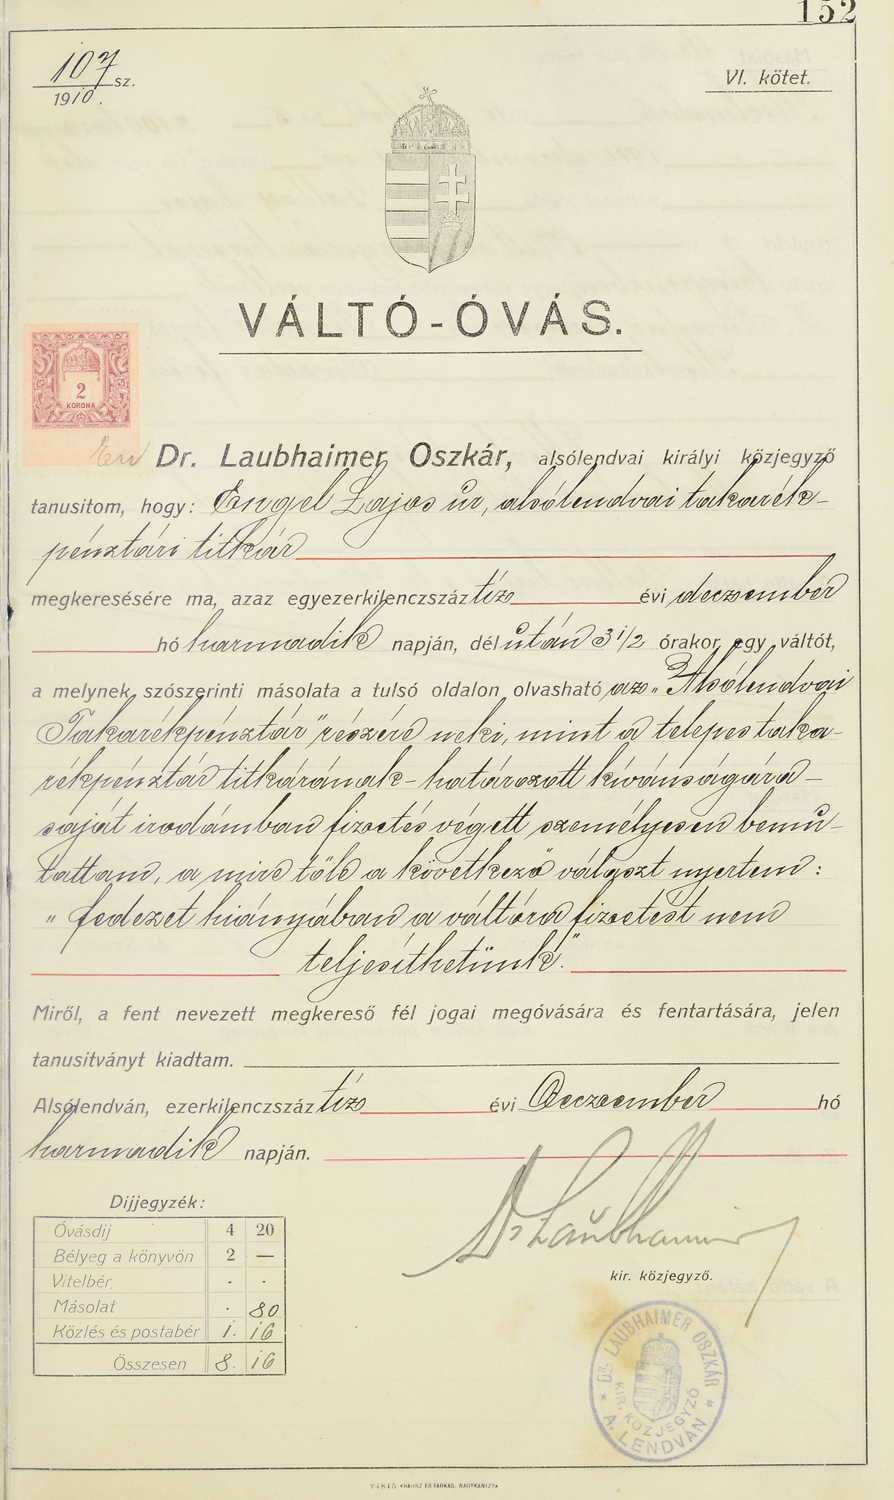 152
107 sz.
1910.
VI. kötet.
VÁLTÓ-ÓVÁS.
2
KORONA
Én Dr. Laubhaimer Oszkár, alsólendvai királyi közjegyző
tanusitom, hogy: Engel Lajos úr, alsólendvai takarék-
pénztári titkár
megkeresésére ma, azaz egyezerkilenczszáz tíz évi deczember
hó harmadik napján, dél után 3 1/2 órakor, egy váltót,
a melynek szószerinti másolata a tulsó oldalon olvasható az „Alsólendvai
Takarékpénztár” részére neki, mint a telepes taka-
rékpénztár titkárának - határozott kívánságára -
saját irodámban fizetés végett személyesen bemu-
tattam, a mire tőle a következő választ nyertem:
„fedezet hiányában a váltóra fizetést nem
teljesíthetünk.”
Miről, a fent nevezett megkereső fél jogai megóvására és fentartására, jelen
tanusitványt kiadtam.
Alsólendván, ezerkilenczszáz tíz évi Deczember hó
harmadik napján.
Dijjegyzék:
Óvásdij 4 20
Bélyeg a könyvön 2 —
Vitelbér . .
Másolat . 80
Közlés és postabér 1. 16
Összesen 8. 16
Dr Laubhaimer
kir. közjegyző.
* DR. LAUBHAIMER OSZKÁR *
KIR. KÖZJEGYZŐ
A. LENDVÁN
24815 KRAUSZ ÉS FARKAS, NAGYKANIZSA